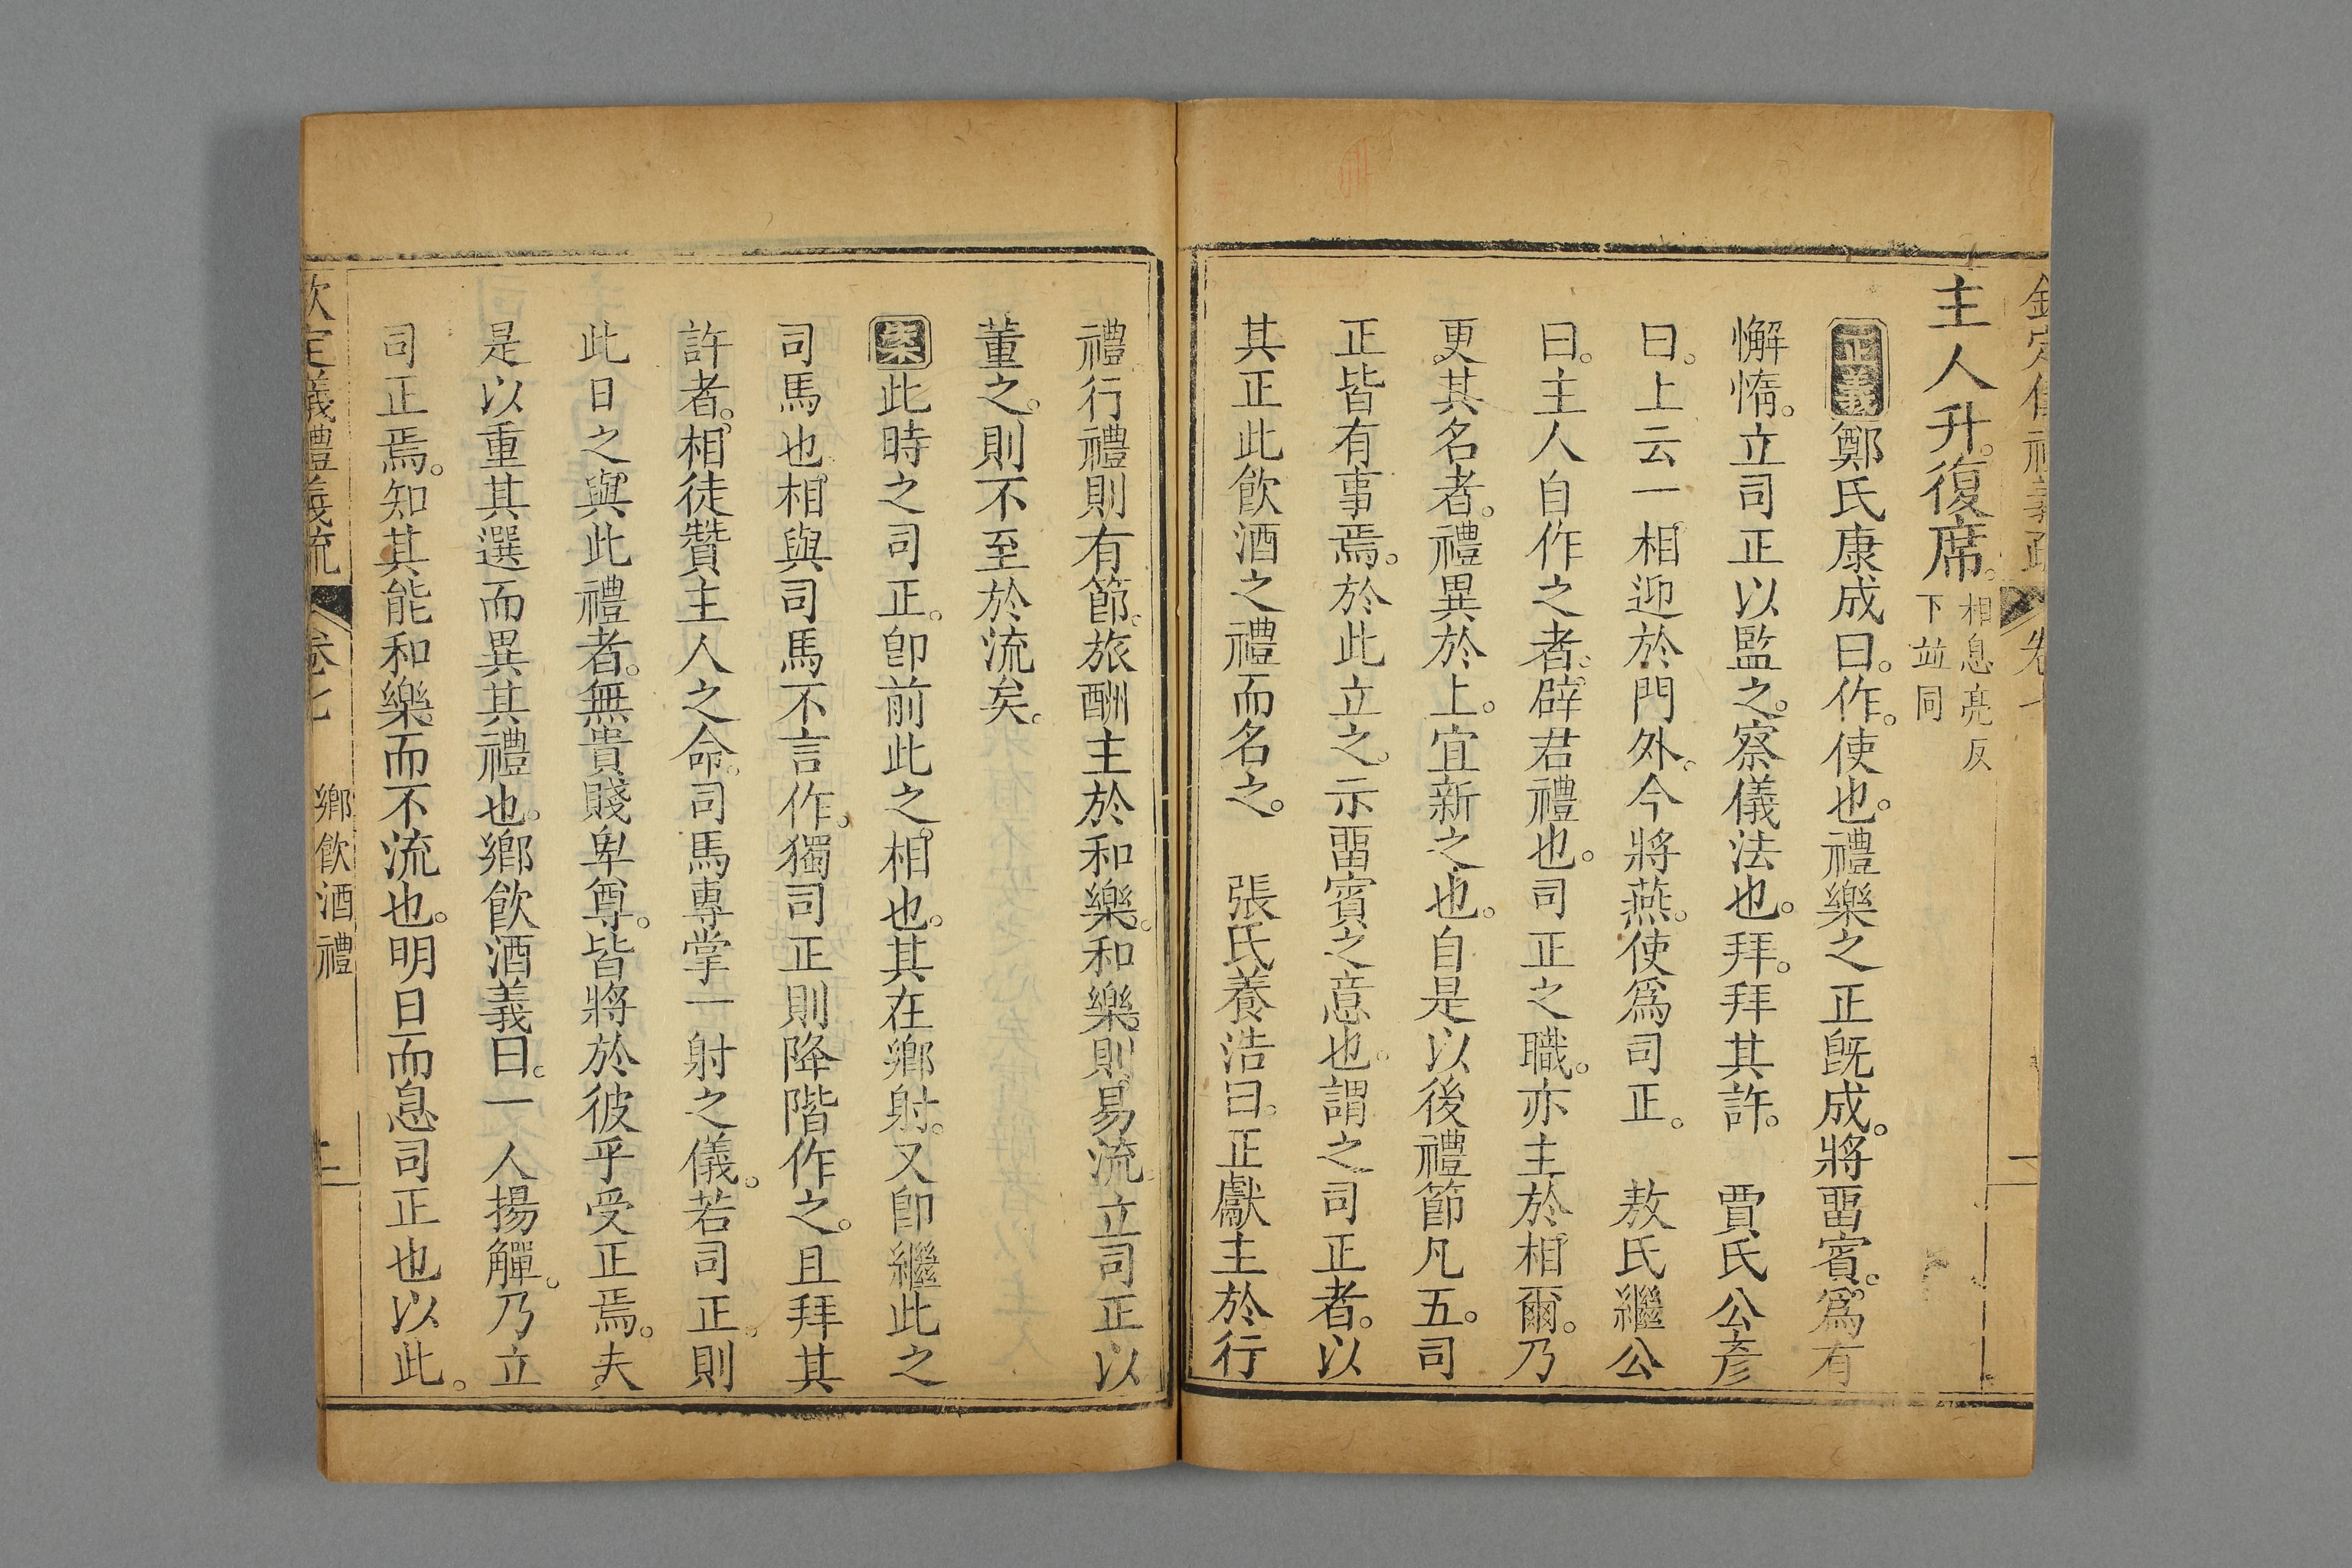 主人升。復席。相息亮反下並同
正義鄭氏康成曰。作。使也。禮樂之正旣成。將畱賓。爲有
懈惰。立司正以監之。察儀法也。拜。拜其許。　賈氏公彥
曰。上云一相迎於門外。今將燕。使爲司正。　敖氏繼公
曰。主人自作之者。辟君禮也。司正之職。亦主於相爾。乃
更其名者。禮異於上。宜新之也。自是以後禮節凡五。司
正皆有事焉。於此立之。示畱賓之意也。謂之司正者。以
其正此飮酒之禮而名之。　張氏養浩曰。正獻主於行
禮。行禮則有節。旅酬主於和樂。和樂則易流。立司正以
董之。則不至於流矣。
案此時之司正。卽前此之相也。其在鄉射。又卽繼此之
司馬也。相與司馬不言作。獨司正則降階作之。且拜其
許者。相徒贊主人之命。司馬專掌一射之儀。若司正。則
此日之與此禮者。無貴賤卑尊。皆將於彼乎受正焉。夫
是以重其選而異其禮也。鄉飮酒義曰。一人揚觶。乃立
司正焉。知其能和樂而不流也。明日而息司正也以此。
欽定儀禮義疏　卷七　鄉飮酒禮